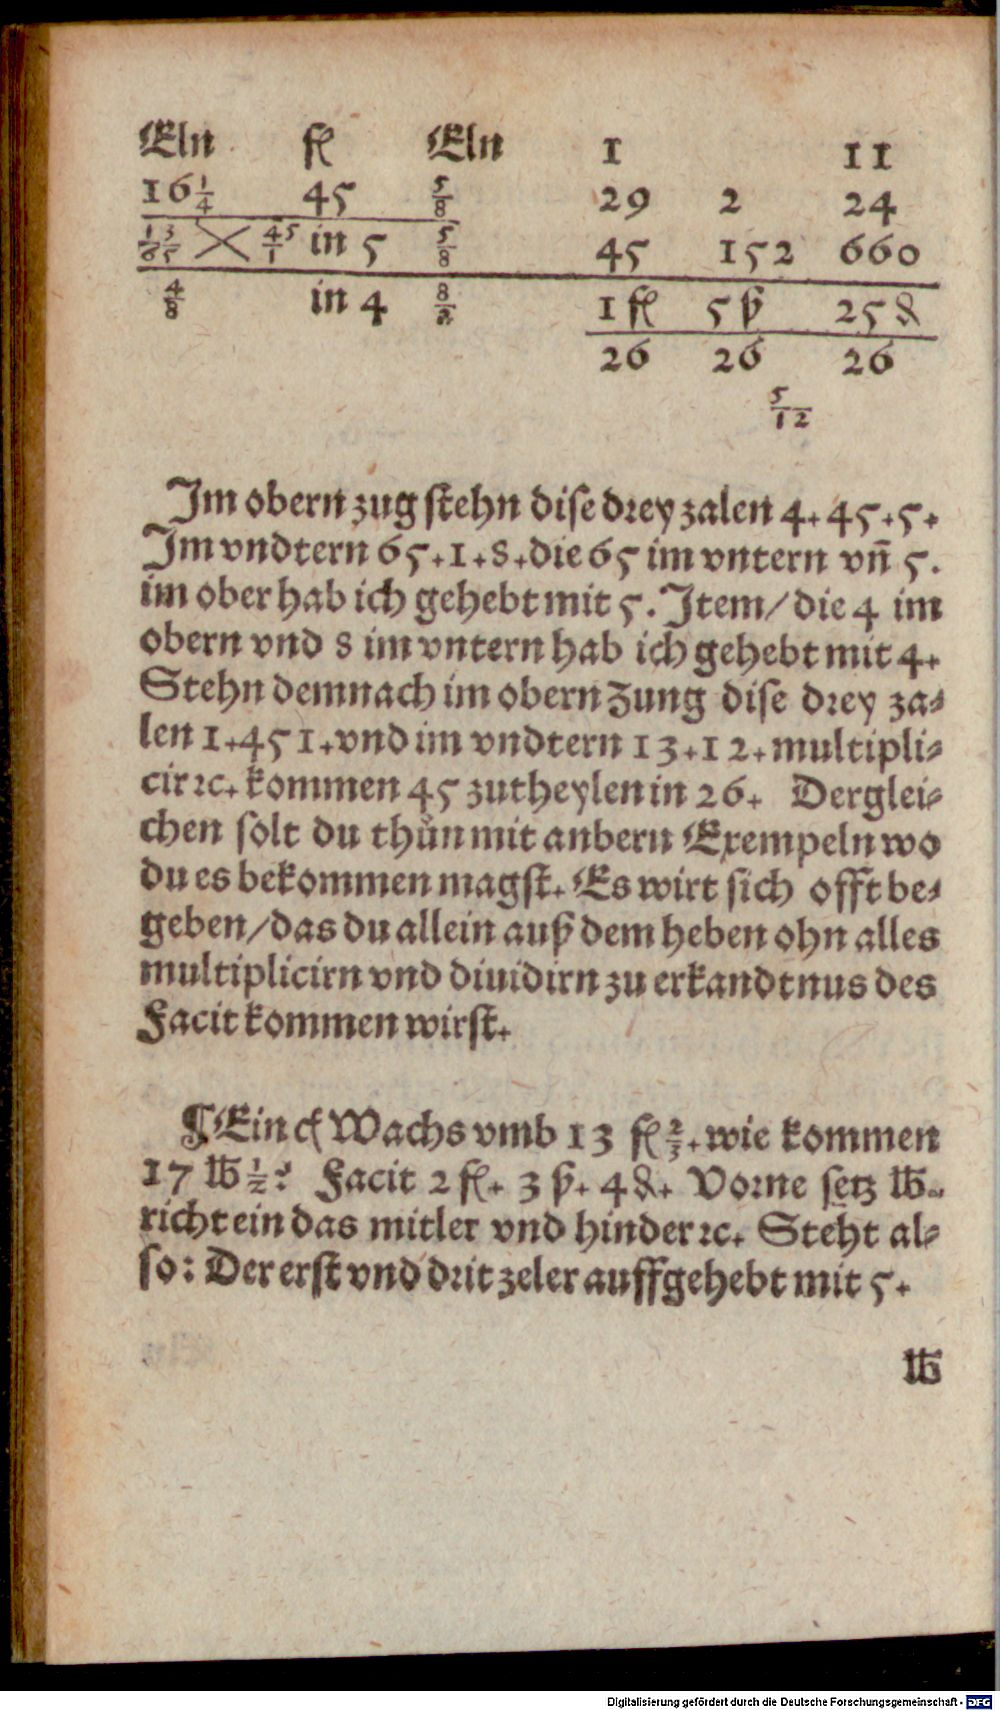 Eln fl Eln 1 11
16 1/4 45 5/8 29 2 24
13/65 45/1 in 5 5/8 45 152 660
4/8 in 4 8/2 1 fl 5 ß 25 ₰
26 26 26
5/12
Im obern zug stehn dise drey zalen 4. 45. 5.
Im vndtern 65. 1. 8. die 65 im vntern vñ 5.
im ober hab ich gehebt mit 5. Item/ die 4 im
obern vnd 8 im vntern hab ich gehebt mit 4.
Stehn demnach im obern Zung dise drey za-
len 1. 45 1. vnd im vndtern 13. 1 2. multipli-
cir ꝛc. kommen 45 zutheylen in 26. Derglei-
chen solt du thůn mit anbern Exempeln wo
du es bekommen magst. Es wirt sich offt be-
geben/ das du allein auß dem heben ohn alles
multiplicirn vnd diuidirn zu erkandtnus des
Facit kommen wirst.
¶ Ein ct Wachs vmb 13 fl 2/3. wie kommen
17 ℔ 1/2? Facit 2 fl. 3 ß. 4 ₰. Vorne setz ℔.
richt ein das mitler vnd hinder ꝛc. Steht al-
so: Der erst vnd drit zeler auffgehebt mit 5.
℔
Digitalisierung gefördert durch die Deutsche Forschungsgemeinschaft - DFG